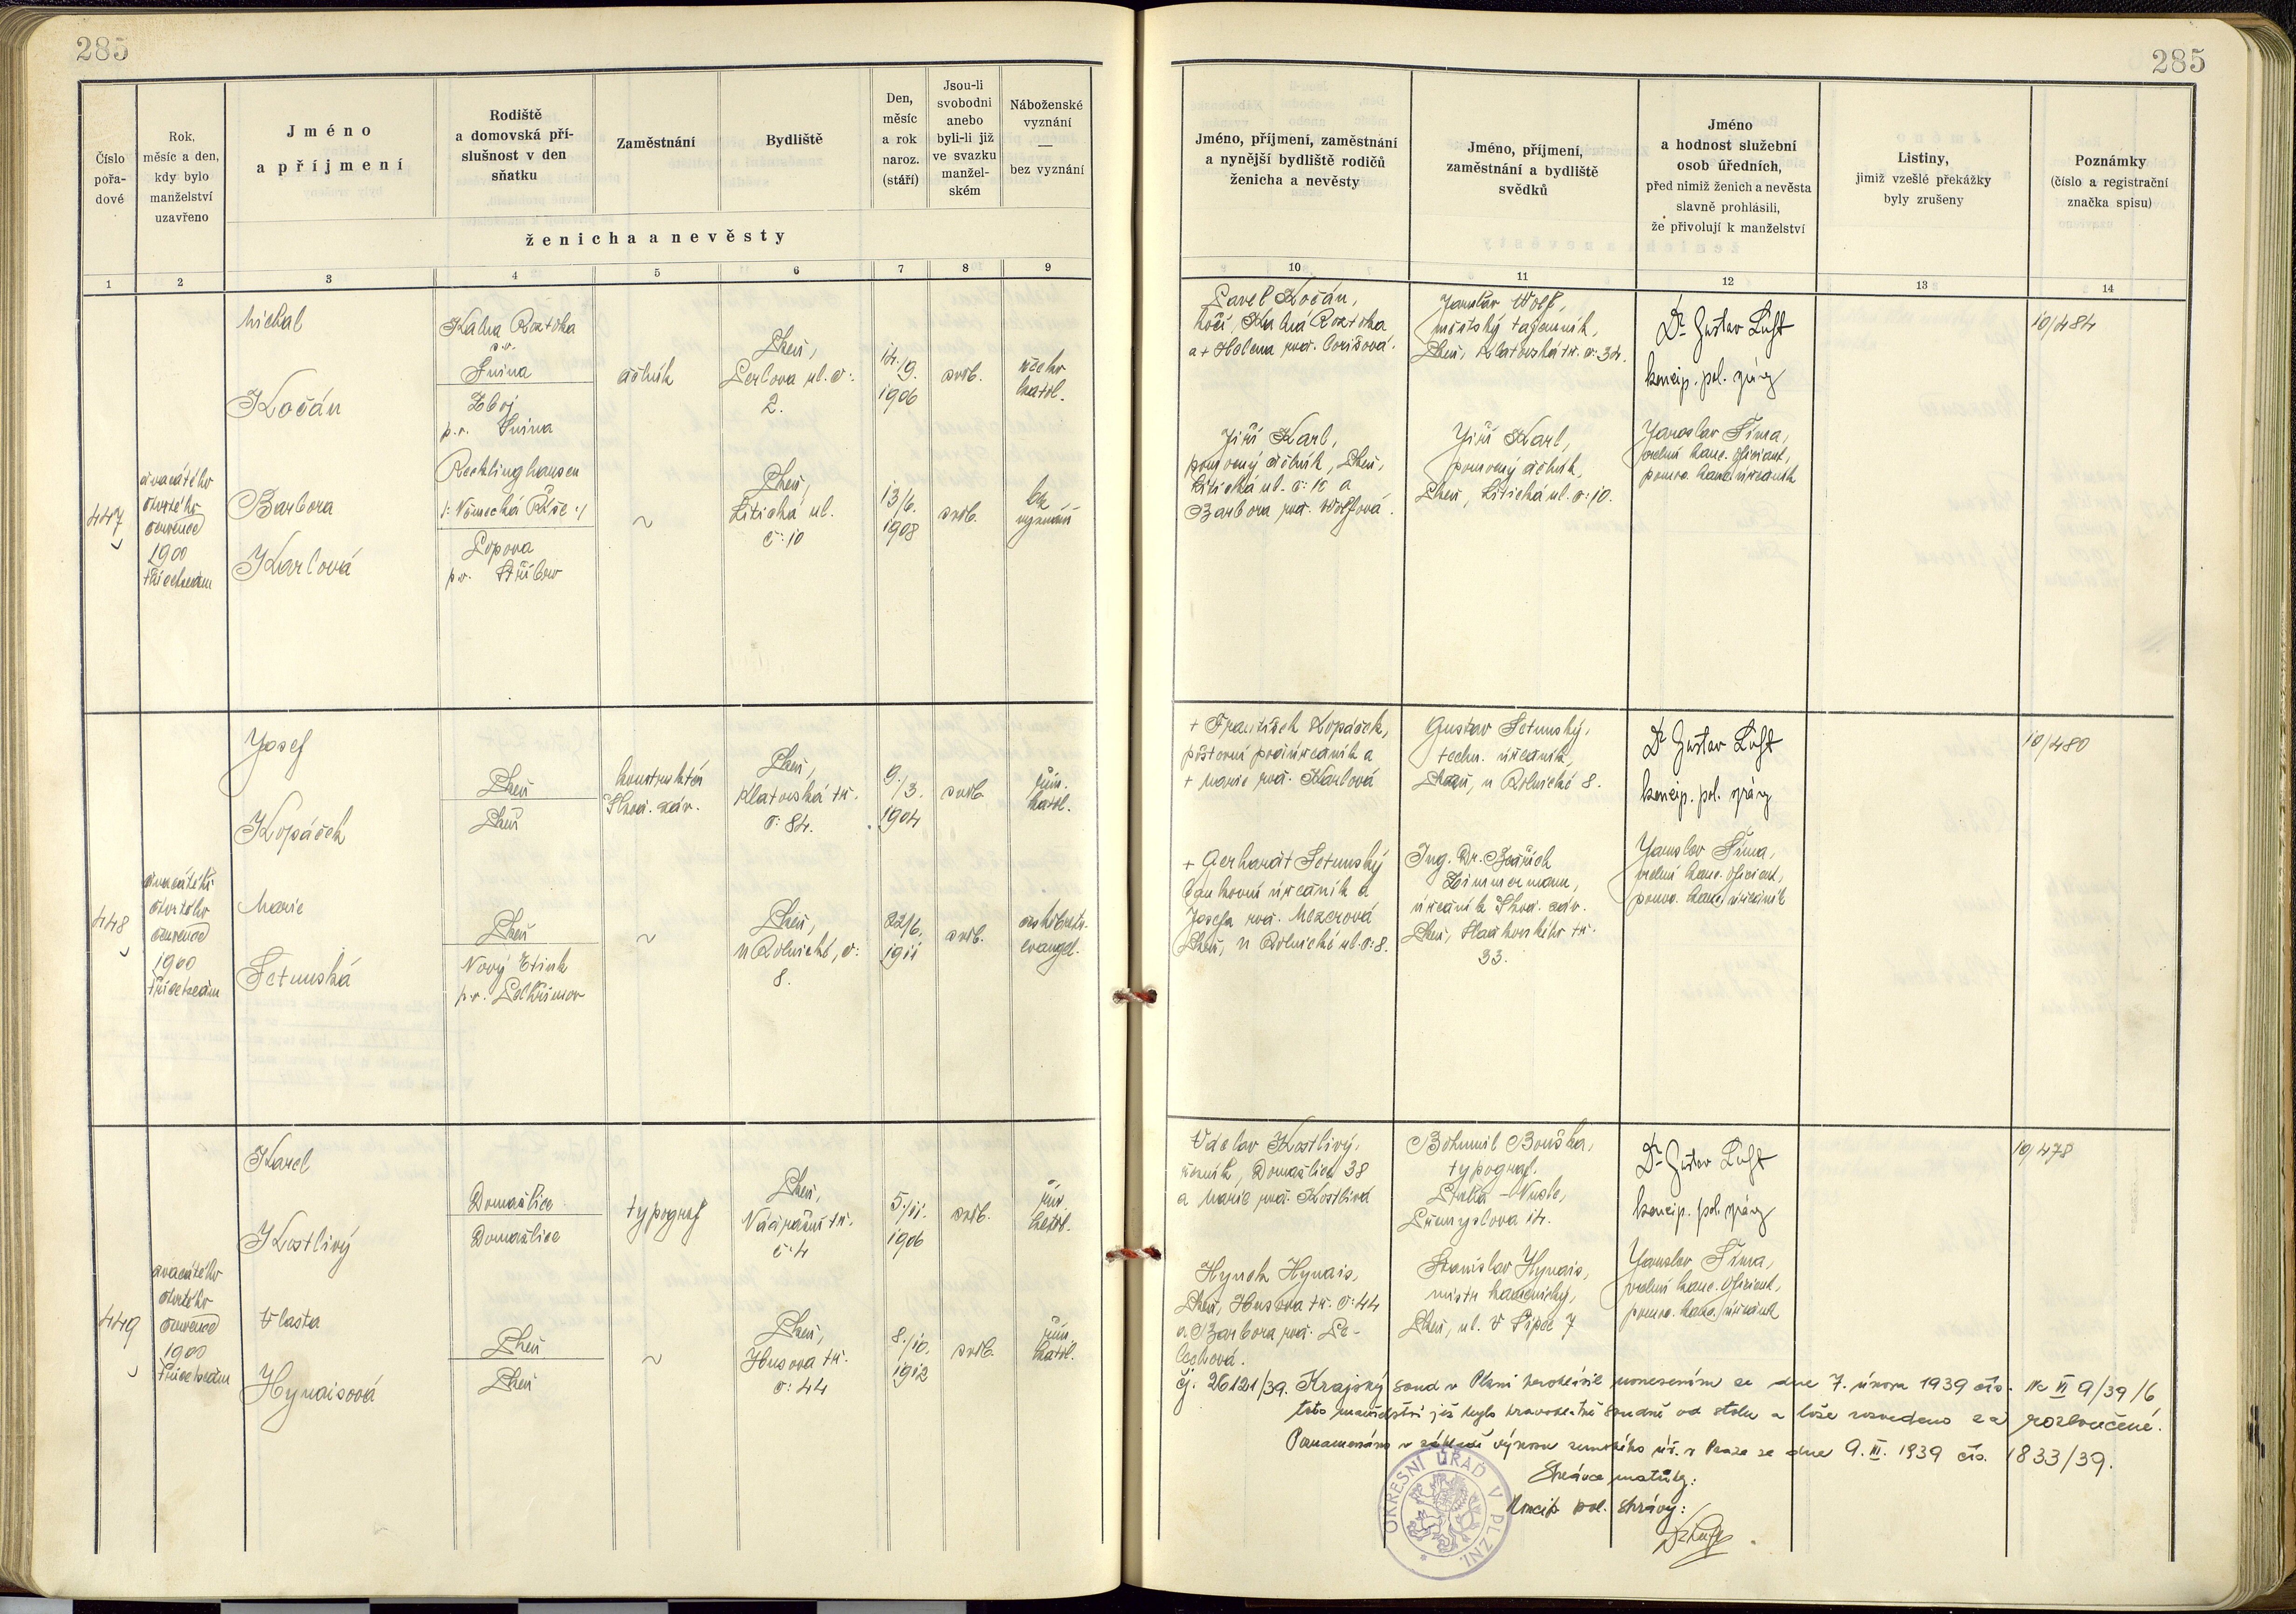 285
285
Číslo
pořa-
dové
Rok,
měsíc a den,
kdy bylo
manželství
uzavřeno
Jméno
a příjmení
Rodiště
a domovská pří-
slušnost v den
sňatku
Zaměstnání
Bydliště
Den,
měsíc
a rok
naroz.
(stáří)
Jsou-li
svobodni
anebo
byli-li již
ve svazku
manžel-
ském
Náboženské
vyznání
—
bez vyznání
ženicha a nevěsty
Jméno, příjmení, zaměstnání
a nynější bydliště rodičů
ženicha a nevěsty
Jméno, příjmení,
zaměstnání a bydliště
svědků
Jméno
a hodnost služební
osob úředních,
před nimiž ženich a nevěsta
slavně prohlásili,
že přivolují k manželství
Listiny,
jimiž vzešlé překážky
byly zrušeny
Poznámky
(číslo a registrační
značka spisu)
1 2 3 4 5 6 7 8 9 10 11 12 13 14
447
dvacátého
čtvrtého
července
1900
třicetsedm
Michal
Kočán
Kalna Roztoka
Snina
Zboj
p.o. Snina
dělník
Plzeň,
Perlova ul. č:
2.
14./9.
1906
svob.
řecko
katol.
Barbora
Karlová
Recklinghausen
/: Německá Říše :/
Popova
p.o. Stříbro
~
Plzeň,
Litická ul.
č: 10
13/6.
1908
svob.
bez
vyznání
Pavel Kočán,
kočí, Kalná Roztoka
a + Helena roz.
Jiří Karl,
pomocný dělník, Plzeň,
Litická ul. č: 10 a
Barbora roz. Wolfová.
Jaroslav Wolf,
městský tajemník,
Plzeň, Klatovská tř. č: 34.
Jiří Karl,
pomocný dělník,
Plzeň, Litická ul. č: 10.
Dr Gustav Luft
koncip. pol. správy
Jaroslav Šíma,
vedni kanc. oficiant,
pomoc. kanc. úředník
10/484
448
dvacátého
čtvrtého
července
1900
třicetsedm
Josef
Kopáček
Plzeň
Plzeň
konstruktér
Škod. záv.
Plzeň,
Klatovská tř.
č: 84.
9./3.
1904
svob.
řím.
katol.
Marie
Setunská
Plzeň
Nový
p.o. Pelhřimov
~
Plzeň,
u Rolnické, č:
8.
22/6.
1911
svob.
českobratr.
evangel.
+ František Kopáček,
poštovní podúředník a
+ Marie roz. Karlová
+ Gerhardt Setunský
bankovní úředník a
Josefa roz.
Plzeň, u Rolnické ul. č: 8.
Gustav Setunský,
techn. úředník,
Plzeň, u Rolnické 8.
Ing. Dr. Bedřich
Zimmermann,
úředník Škod. záv.
Plzeň, tř.
33.
Dr Gustav Luft
koncip. pol. správy
Jaroslav Šíma,
vedni kanc. oficiant,
pomoc. kanc. úředník
10/480
449
dvacátého
čtvrtého
července
1900
třicetsedm
Karel
Kostlivý
Domažlice
Domažlice
typograf
Plzeň,
Nádražní tř.
č: 4
5./11.
1906
svob.
řím.
katol.
Vlasta
Hynaisová
Plzeň
Plzeň
~
Plzeň,
Husova tř.
č: 44
8./10.
1912
svob.
řím.
katol.
Václav Kostlivý,
řezník, Domažlice 38
a Marie roz. Kostlivá
Hynek Hynais,
Plzeň, Husova tř. č: 44
a Barbora roz.
Bohumil Bouška,
typograf.
Praha - Nusle,
Přemyslova 14.
Stanislav Hynais,
mistr kamenický,
Plzeň, ul. V Šipce 7
Dr Gustav Luft
koncip. pol. správy
Jaroslav Šíma,
vedni kanc. oficiant,
pomoc. kanc. úředník
10/478
Čj. 26121/39. Krajský soud v Plzni prohlásil usnesením ze dne 7. února 1939 čís. Nc VI 9/39/6
toto manželství jež bylo pravoplatně soudně od stolu a lože rozvedeno za rozloučené.
Poznamenáno v základě výnosu zemského úř. v Praze ze dne 9. III. 1939 čís. 1833/39.
Správce matriky:
Koncip. pol. správy:
OKRESNÍ ÚŘAD V PLZNI